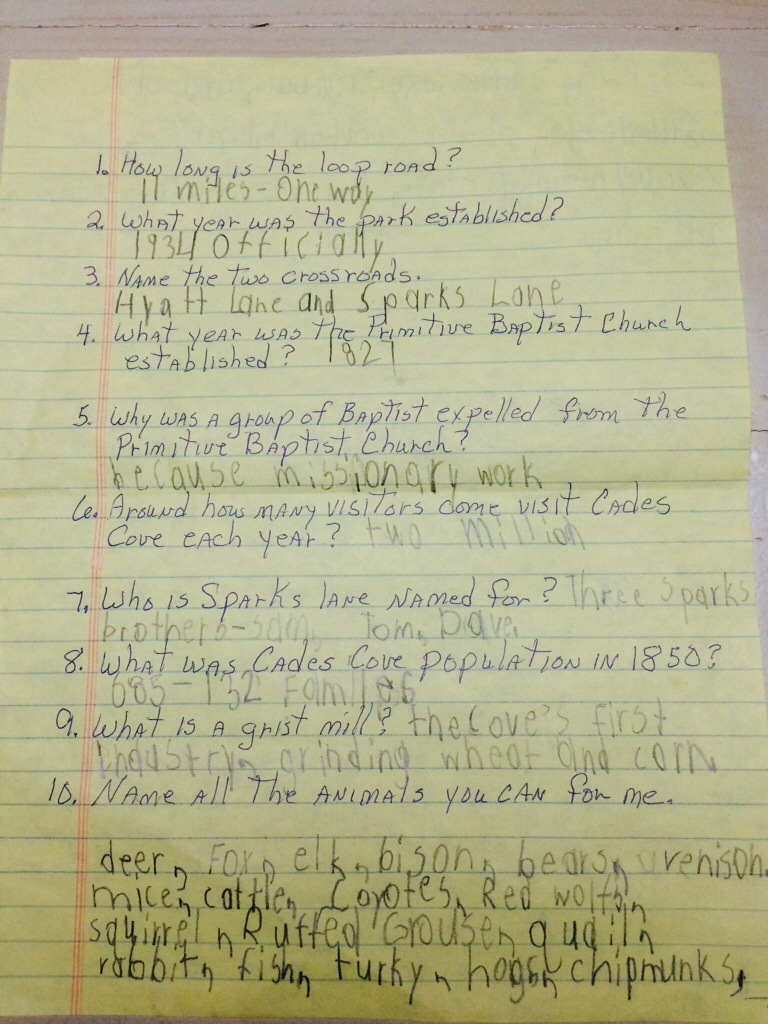 1. How long is the loop road?
11 miles - One way
2. What year was the park established?
1934 Officially
3. Name the two crossroads.
Hyatt Lane and Sparks Lane
4. What year was the Primitive Baptist Church
established? 1827
5. Why was a group of Baptist expelled from the
Primitive Baptist Church?
because missionary work
6. Around how many visitors come visit Cades
Cove each year? two million
7. Who is Sparks lane named for? Three Sparks
brothers - Sam, Tom, Dave.
8. What was Cades Cove population in 1850?
685 - 132 Familes
9. What is a grist mill? the Cove's first
industry, grinding wheat and corn.
10. Name all the animals you can for me.
deer, Fox, elk, bison, bears, venison.
mice, cattle, Coyotes, Red wolfs,
squirrel, Ruffed Grouse, quail,
rabbit, fish, turky, hogs, chipmunks,